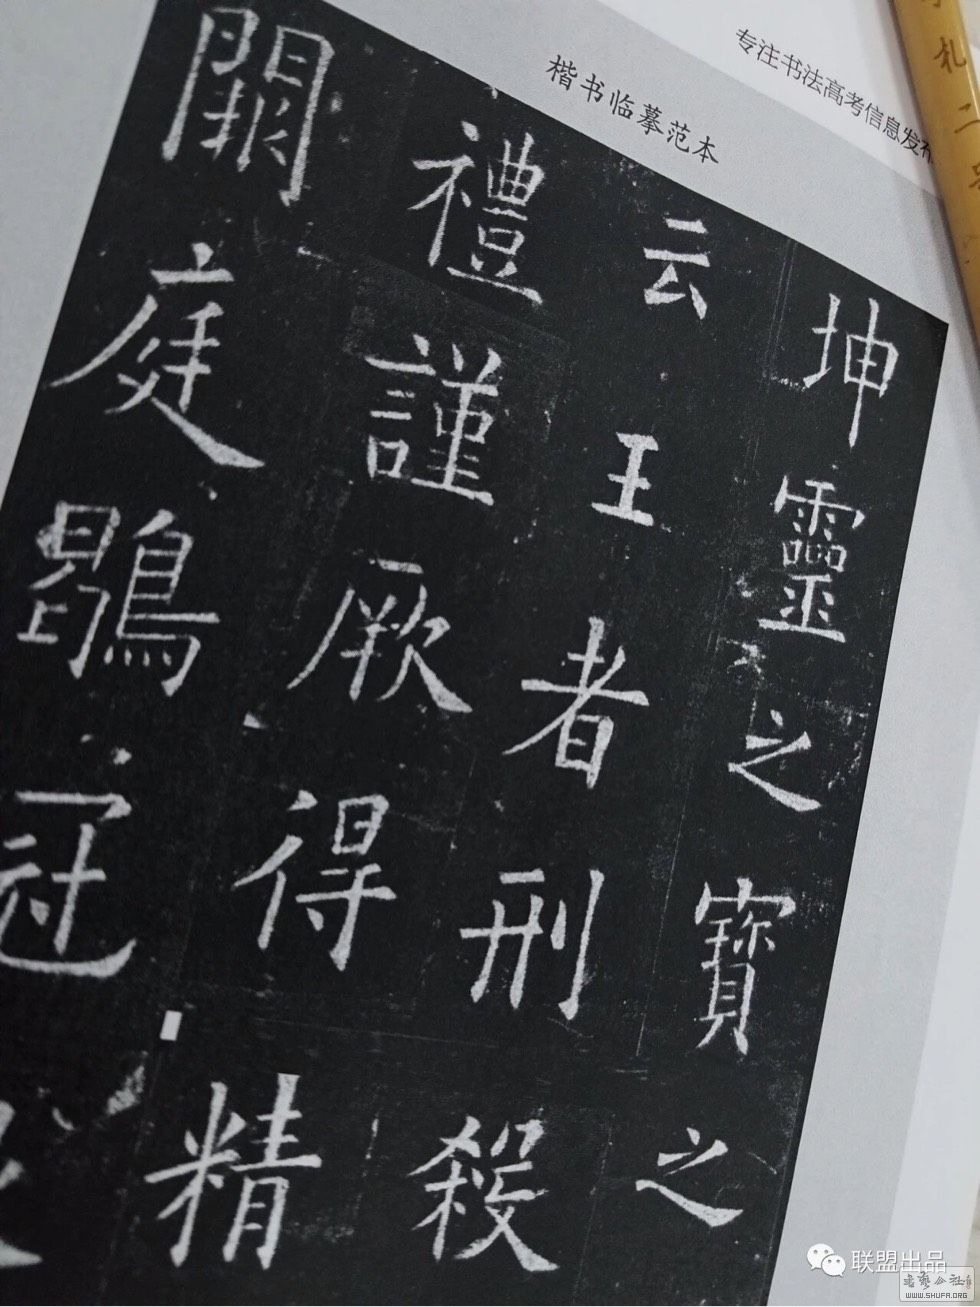 专注书法高考信息发布
楷书临摹范本
坤靈之寶之
云王者刑殺
禮謹厥得精
闕庭鶡冠
联盟出品
WWW.SHUFA.ORG